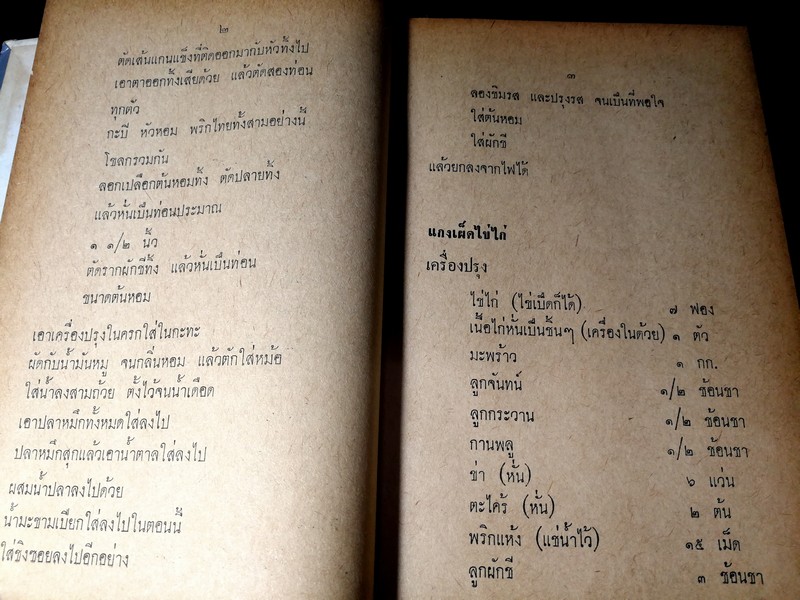 ๒
ตัดเส้นแกนแข็งที่ติดออกมากับหัวทั้งไป
เอาตาออกทั้งเสียด้วย แล้วตัดสองท่อน
ทุกตัว
กะปิ หัวหอม พริกไทยทั้งสามอย่างนี้
โขลกรวมกัน
ลอกเปลือกต้นหอมทั้ง ตัดปลายทั้ง
แล้วหั่นเป็นท่อนประมาณ
๑ ๑/๒ นิ้ว
ตัดรากผักชีทั้ง แล้วหั่นเป็นท่อน
ขนาดต้นหอม
เอาเครื่องปรุงในครกใส่ในกะทะ
ผัดกับน้ำมันหมู จนกลิ่นหอม แล้วตักใส่หม้อ
ใส่น้ำลงสามถ้วย ตั้งไว้จนน้ำเดือด
เอาปลาหมึกทั้งหมดใส่ลงไป
ปลาหมึกสุกแล้วเอาน้ำตาลใส่ลงไป
ผสมน้ำปลาลงไปด้วย
น้ำมะขามเปียกใส่ลงไปในตอนนี้
ใส่ขิงซอยลงไปอีกอย่าง
๓
ลองชิมรส และปรุงรส จนเป็นที่พอใจ
ใส่ต้นหอม
ใส่ผักชี
แล้วยกลงจากไฟได้
แกงเผ็ดไข่ไก่
เครื่องปรุง
ไข่ไก่ (ไข่เป็ดก็ได้) ๗ ฟอง
เนื้อไก่หั่นเป็นชิ้นๆ (เครื่องในด้วย) ๑ ตัว
มะพร้าว ๑ กก.
ลูกจันทน์ ๑/๒ ช้อนชา
ลูกกระวาน ๑/๒ ช้อนชา
กานพลู ๑/๒ ช้อนชา
ข่า (หั่น) ๖ แว่น
ตะไคร้ (หั่น) ๒ ต้น
พริกแห้ง (แช่น้ำไว้) ๑๕ เม็ด
ลูกผักชี ๓ ช้อนชา